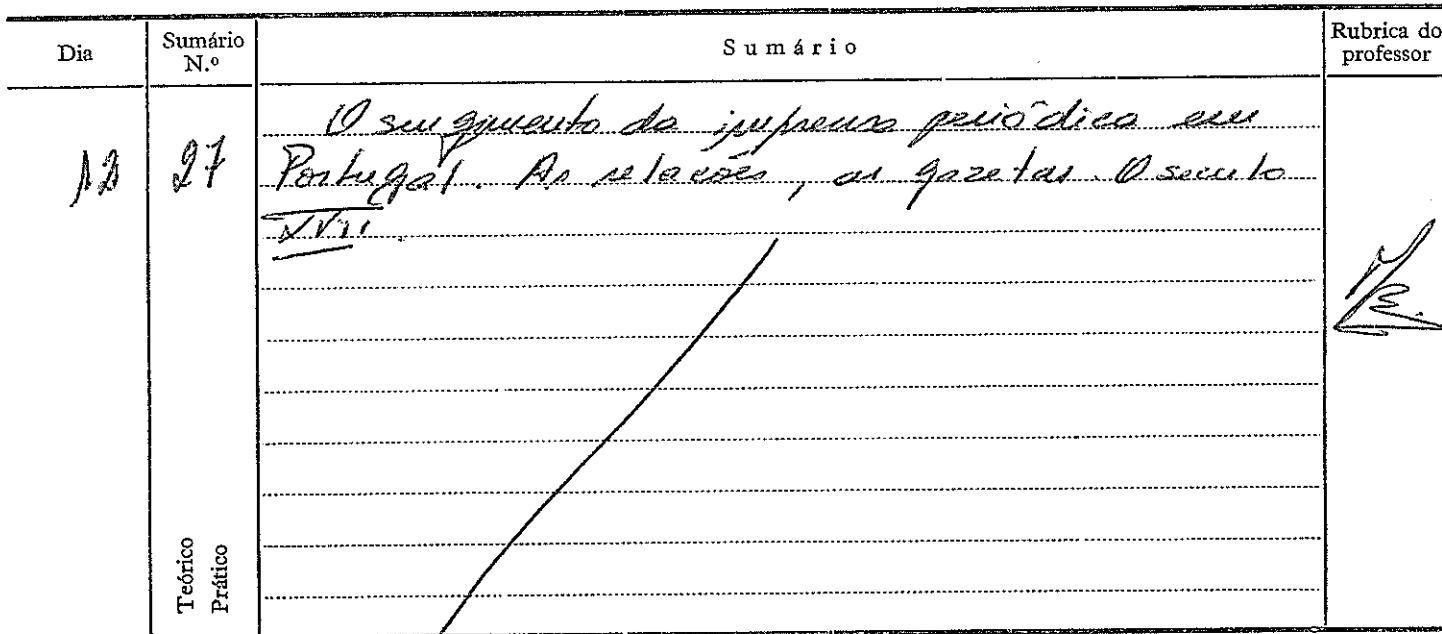 Dia
Sumário N.º
Sumário
Rubrica do professor
12
27
O surgimento da imprensa periódica em
Portugal. As relações, as gazetas. O seculo
XVII.
Teórico
Prático